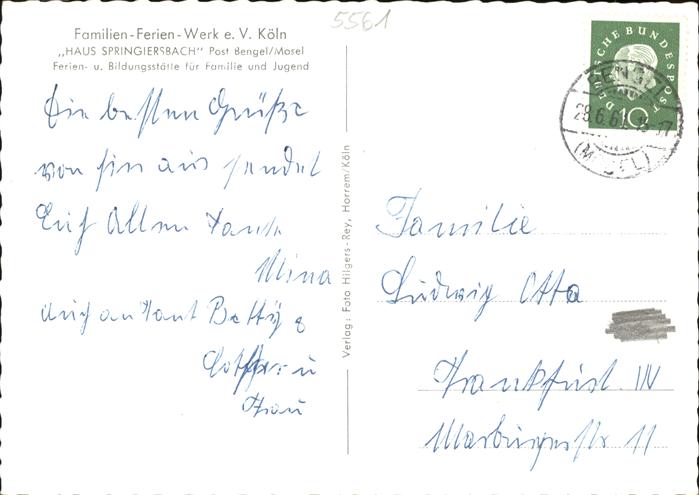 5561
Familien-Ferien-Werk e. V. Köln
„HAUS SPRINGIERSBACH" Post Bengel/Mosel
Ferien- u. Bildungsstätte für Familie und Jugend
Die besten Grüße
von hier aus sendet
Euch Allen Tante
Mina
auch an Tant Betty &
u
Frau
Verlag: Foto Hilgers-Rey, Horrem/Köln
DEUTSCHE BUNDESPOST
10
BENGEL
28.6.61
(MOSEL)
Familie
Ludwig Otto
Frankfurt
Marburgerstr 11